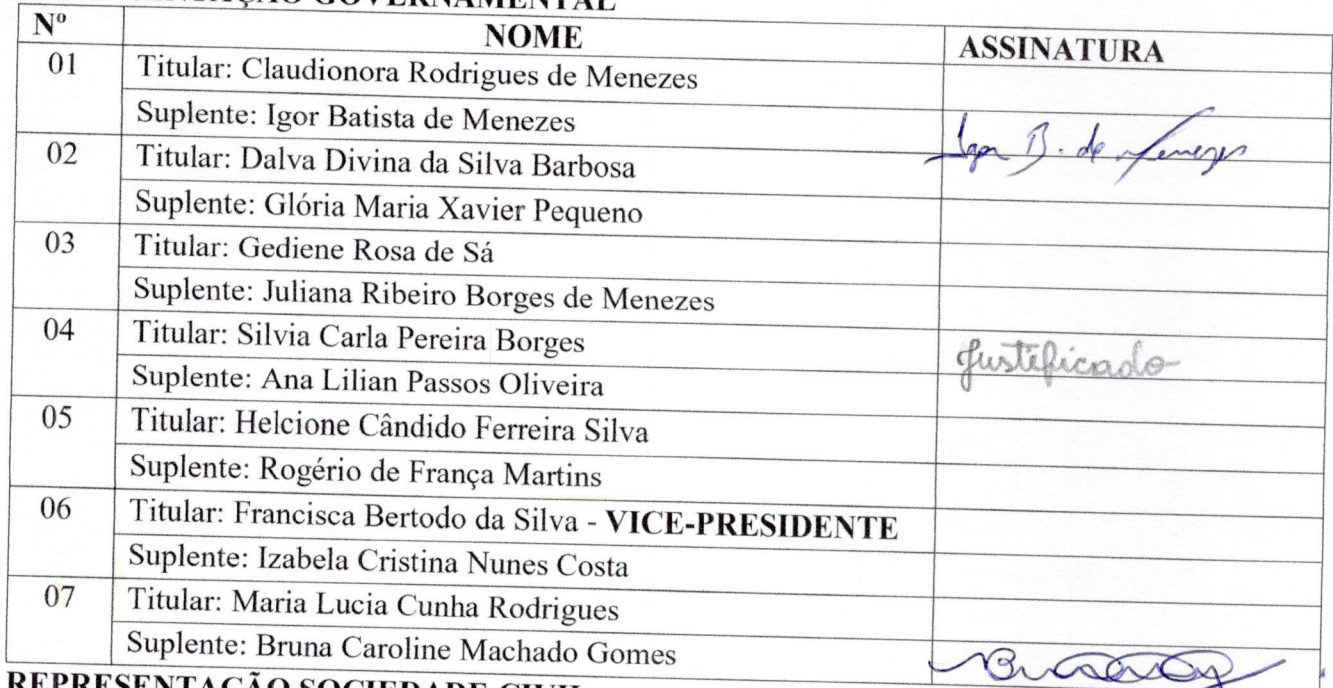 GOVERNAMENTAL
Nº NOME ASSINATURA
01 Titular: Claudionora Rodrigues de Menezes
Suplente: Igor Batista de Menezes Igor B. de Menezes
02 Titular: Dalva Divina da Silva Barbosa
Suplente: Glória Maria Xavier Pequeno
03 Titular: Gediene Rosa de Sá
Suplente: Juliana Ribeiro Borges de Menezes
04 Titular: Silvia Carla Pereira Borges Justificado
Suplente: Ana Lilian Passos Oliveira
05 Titular: Helcione Cândido Ferreira Silva
Suplente: Rogério de França Martins
06 Titular: Francisca Bertodo da Silva - VICE-PRESIDENTE
Suplente: Izabela Cristina Nunes Costa
07 Titular: Maria Lucia Cunha Rodrigues
Suplente: Bruna Caroline Machado Gomes
REPRESENTAÇÃO SOCIEDADE CIVIL